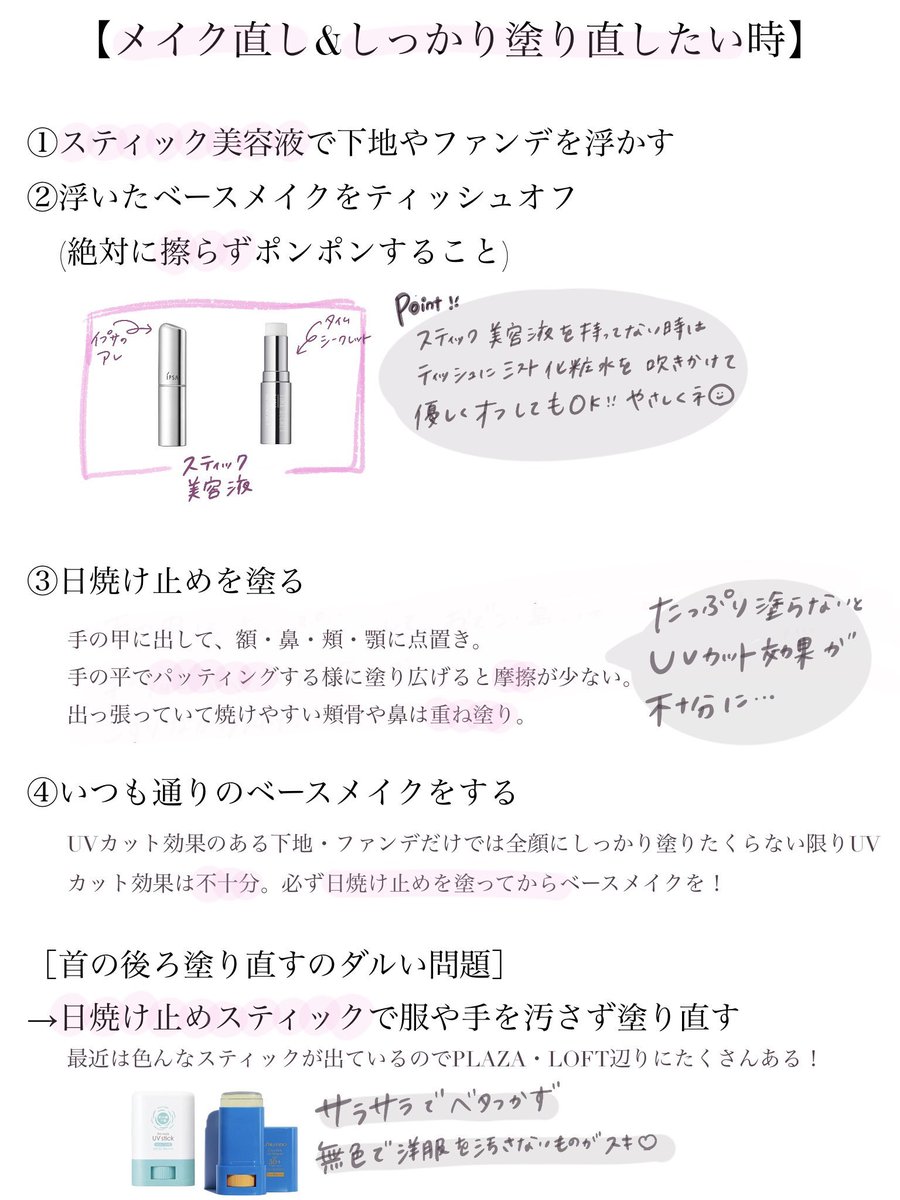 【メイク直し&しっかり塗り直したい時】
①スティック美容液で下地やファンデを浮かす
②浮いたベースメイクをティッシュオフ
(絶対に擦らずポンポンすること)
イプサの
アレ
IPSA
タイム
シークレット
スティック
美容液
Point!!
スティック美容液を持ってない時は
ティッシュにミスト化粧水を吹きかけて
優しくオフしてもOK!! やさしくネ☺
③日焼け止めを塗る
手の甲に出して、額・鼻・頬・顎に点置き。
手の平でパッティングする様に塗り広げると摩擦が少ない。
出っ張っていて焼けやすい頬骨や鼻は重ね塗り。
たっぷり塗らないと
UVカット効果が
不十分に…
④いつも通りのベースメイクをする
UVカット効果のある下地・ファンデだけでは全顔にしっかり塗りたくらない限りUV
カット効果は不十分。必ず日焼け止めを塗ってからベースメイクを！
［首の後ろ塗り直すのダルい問題］
→日焼け止めスティックで服や手を汚さず塗り直す
最近は色んなスティックが出ているのでPLAZA・LOFT辺りにたくさんある！
UV stick
SHISEIDO
50+
サラサラでベタつかず
無色で洋服を汚さないものがスキ♡